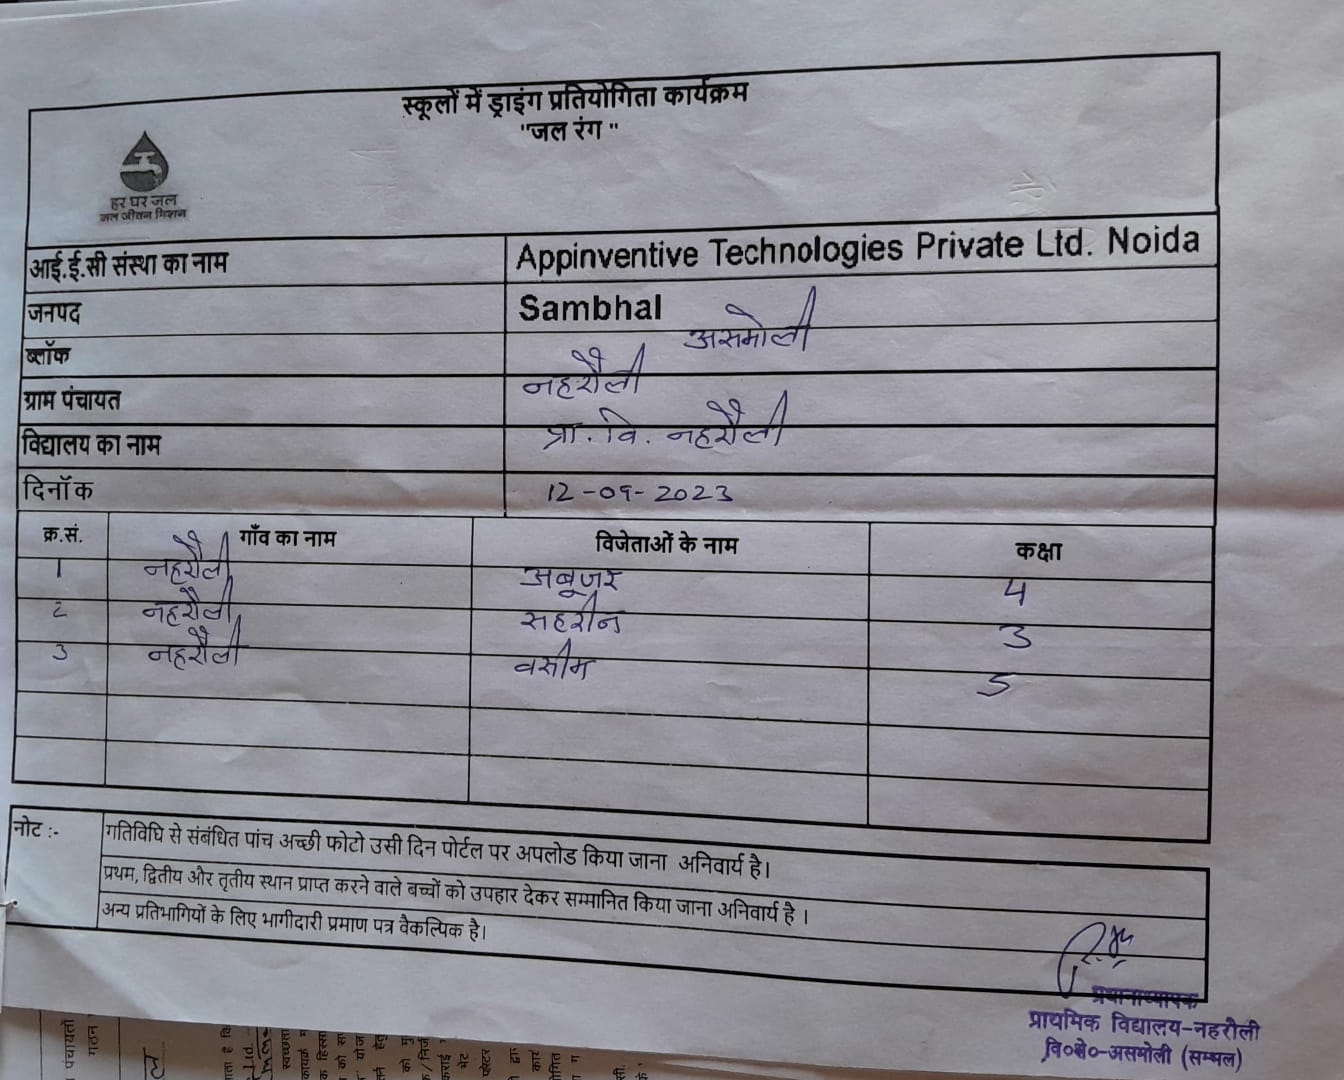 स्कूलों में ड्राइंग प्रतियोगिता कार्यक्रम
"जल रंग "
हर घर जल
जल जीवन मिशन
आई.ई.सी संस्था का नाम Appinventive Technologies Private Ltd. Noida
जनपद Sambhal
ब्लॉक असमोली
ग्राम पंचायत नहरौली
विद्यालय का नाम प्रा. वि. नहरौली
दिनॉक 12-09-2023
क्र.सं. गाँव का नाम विजेताओं के नाम कक्षा
1 नहरौली अबूजर 4
2 नहरौली सहरीन 3
3 नहरौली वसीम 5
नोट :- गतिविधि से संबंधित पांच अच्छी फोटो उसी दिन पोर्टल पर अपलोड किया जाना अनिवार्य है।
प्रथम, द्वितीय और तृतीय स्थान प्राप्त करने वाले बच्चों को उपहार देकर सम्मानित किया जाना अनिवार्य है ।
अन्य प्रतिभागियों के लिए भागीदारी प्रमाण पत्र वैकल्पिक है।
प्रधानाध्यापक
प्राथमिक विद्यालय-नहरौली
वि०क्षे०-असमोली (सम्भल)
पंचायतों
गठन